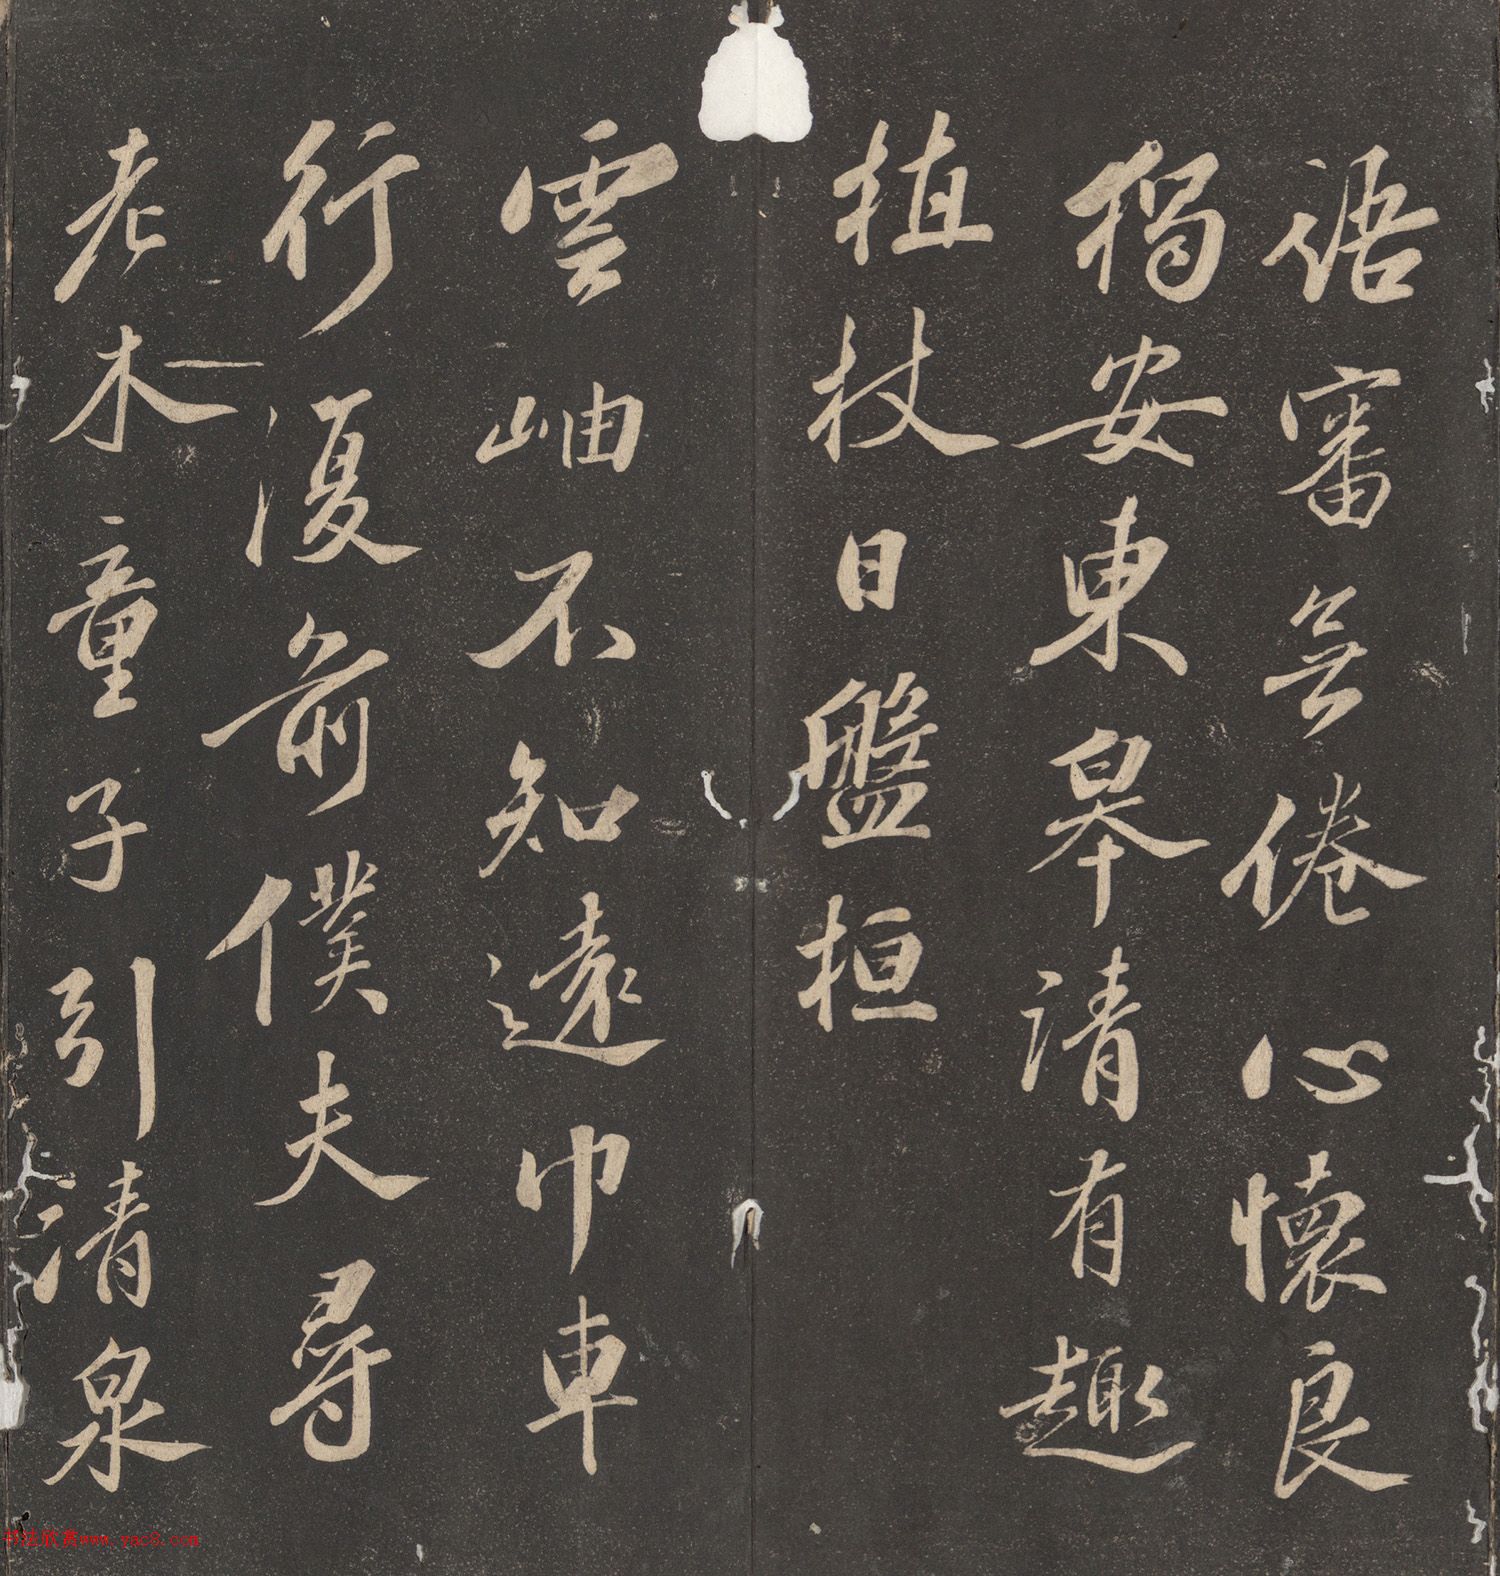 語審無倦心懷良
獨安東皋請有趣
植杖日盤桓
雲岫不知遠巾車
行復前僕夫尋
老木童子引清泉
书法欣赏www.yac8.com